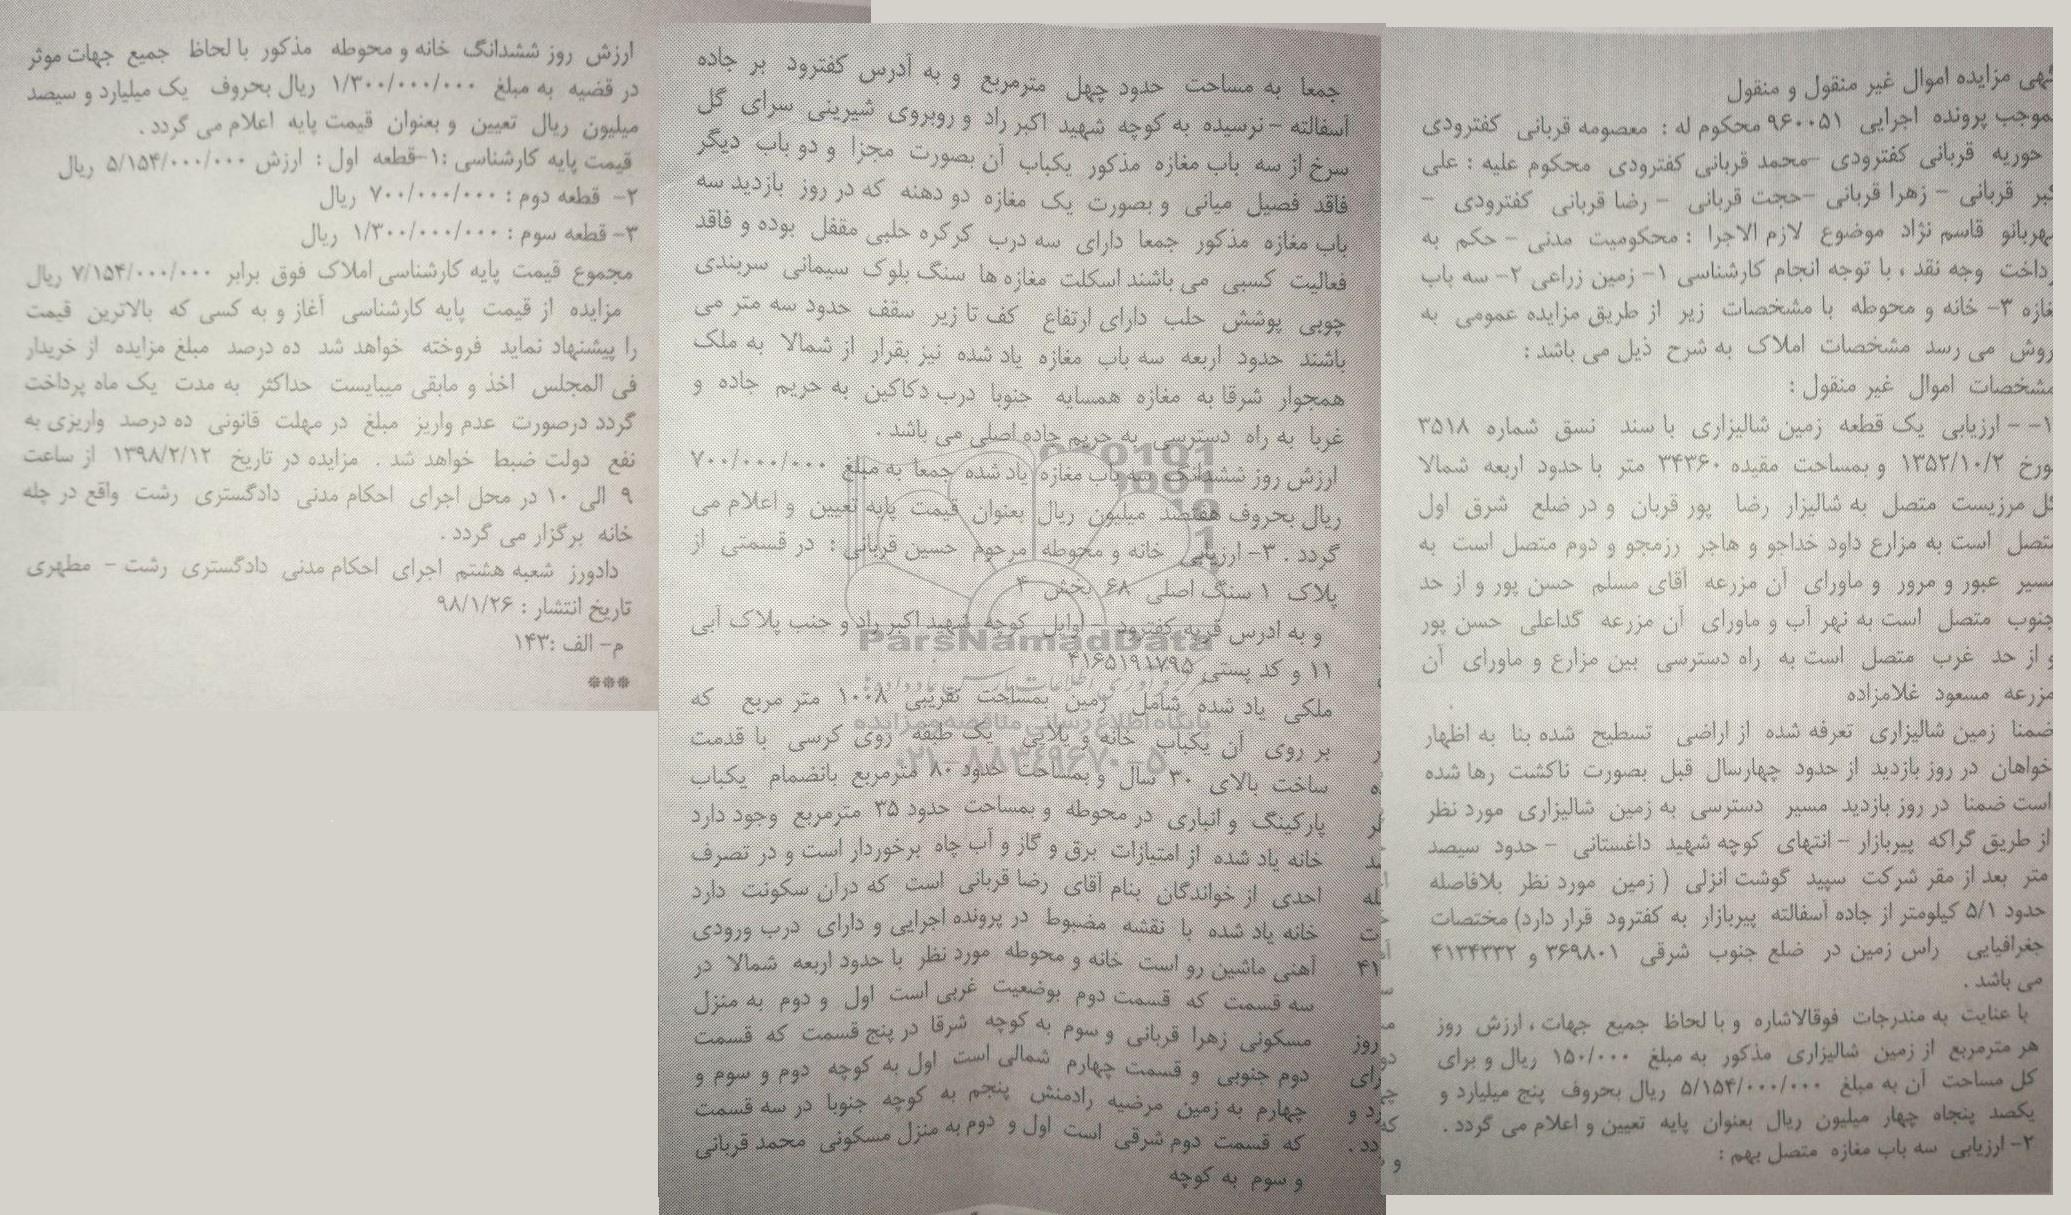 آگهی مزایده اموال غیر منقول و منقول
بموجب پرونده اجرایی ۹۶۰۰۵۱ محکوم له : معصومه قربانی کفترودی
حوریه قربانی کفترودی –محمد قربانی کفترودی محکوم علیه : علی
اکبر قربانی – زهرا قربانی –حجت قربانی – رضا قربانی کفترودی –
شهربانو قاسم نژاد موضوع لازم الاجرا : محکومیت مدنی – حکم به
پرداخت وجه نقد ، با توجه انجام کارشناسی ۱– زمین زراعی ۲– سه باب
مغازه ۳– خانه و محوطه با مشخصات زیر از طریق مزایده عمومی به
فروش می رسد مشخصات املاک به شرح ذیل می باشد :
مشخصات اموال غیر منقول :
۱– – ارزیابی یک قطعه زمین شالیزاری با سند نسق شماره ۳۵۱۸
مورخ ۱۳۵۲/۱۰/۲ و بمساحت مقیده ۳۴۳۶۰ متر با حدود اربعه شمالا
کل مرزیست متصل به شالیزار رضا پور قربان و در ضلع شرق اول
متصل است به مزارع داود خداجو و هاجر رزمجو و دوم متصل است به
مسیر عبور و مرور و ماورای آن مزرعه آقای مسلم حسن پور و از حد
جنوب متصل است به نهر آب و ماورای آن مزرعه گداعلی حسن پور
و از حد غرب متصل است به راه دسترسی بین مزارع و ماورای آن
مزرعه مسعود غلامزاده
ضمنا زمین شالیزاری تعرفه شده از اراضی تسطیح شده بنا به اظهار
خواهان در روز بازدید از حدود چهارسال قبل بصورت ناکشت رها شده
است ضمنا در روز بازدید مسیر دسترسی به زمین شالیزاری مورد نظر
از طریق گراکه پیربازار – انتهای کوچه شهید داغستانی – حدود سیصد
متر بعد از مقر شرکت سپید گوشت انزلی ( زمین مورد نظر بلافاصله
حدود ۵/۱ کیلومتر از جاده آسفالته پیربازار به کفترود قرار دارد) مختصات
جغرافیایی راس زمین در ضلع جنوب شرقی ۳۶۹۸۰۱ و ۴۱۳۴۳۳۲
می باشد .
با عنایت به مندرجات فوقالاشاره و با لحاظ جمیع جهات ، ارزش روز
هر مترمربع از زمین شالیزاری مذکور به مبلغ ۱۵۰/۰۰۰ ریال و برای
کل مساحت آن به مبلغ ۵/۱۵۴/۰۰۰/۰۰۰ ریال بحروف پنج میلیارد و
یکصد پنجاه چهار میلیون ریال بعنوان پایه تعیین و اعلام می گردد .
۲– ارزیابی سه باب مغازه متصل بهم :
جمعا به مساحت حدود چهل مترمربع و به آدرس کفترود بر جاده
آسفالته – نرسیده به کوچه شهید اکبر راد و روبروی شیرینی سرای گل
سرخ از سه باب مغازه مذکور یکباب آن بصورت مجزا و دو باب دیگر
فاقد فصیل میانی و بصورت یک مغازه دو دهنه که در روز بازدید سه
باب مغازه مذکور جمعا دارای سه درب کرکره حلبی مقفل بوده و فاقد
فعالیت کسبی می باشند اسکلت مغازه ها سنگ بلوک سیمانی سربندی
چوبی پوشش حلب دارای ارتفاع کف تا زیر سقف حدود سه متر می
باشند حدود اربعه سه باب مغازه یاد شده نیز بقرار از شمالا به ملک
همجوار شرقا به مغازه همسایه جنوبا درب دکاکین به حریم جاده و
غربا به راه دسترسی به حریم جاده اصلی می باشد .
ارزش روز ششدانگ سه باب مغازه یاد شده جمعا به مبلغ ۷۰۰/۰۰۰/۰۰۰
ریال بحروف هفتصد میلیون ریال بعنوان قیمت پایه تعیین و اعلام می
گردد . ۳– ارزیابی خانه و محوطه مرحوم حسین قربانی : در قسمتی از
پلاک ۱ سنگ اصلی ۶۸ بخش ۴
و به ادرس قریه کفترود – اوایل کوچه شهید اکبر راد و جنب پلاک آبی
۱۱ و کد پستی ۴۱۶۵۱۹۱۷۹۵
ملکی یاد شده شامل زمین بمساحت تقریبی ۱۰۰۸ متر مربع که
بر روی آن یکباب خانه ویلایی یک طبقه روی کرسی با قدمت
ساخت بالای ۳۰ سال و بمساحت حدود ۸۰ مترمربع بانضمام یکباب
پارکینگ و انباری در محوطه و بمساحت حدود ۳۵ مترمربع وجود دارد
خانه یاد شده از امتیازات برق و گاز و آب چاه برخوردار است و در تصرف
احدی از خواندگان بنام آقای رضا قربانی است که درآن سکونت دارد
خانه یاد شده با نقشه مضبوط در پرونده اجرایی و دارای درب ورودی
آهنی ماشین رو است خانه و محوطه مورد نظر با حدود اربعه شمالا در
سه قسمت که قسمت دوم بوضعیت غربی است اول و دوم به منزل
مسکونی زهرا قربانی و سوم به کوچه شرقا در پنج قسمت که قسمت
دوم جنوبی و قسمت چهارم شمالی است اول به کوچه دوم و سوم و
چهارم به زمین مرضیه رادمنش پنجم به کوچه جنوبا در سه قسمت
که قسمت دوم شرقی است اول و دوم به منزل مسکونی محمد قربانی
و سوم به کوچه
ارزش روز ششدانگ خانه و محوطه مذکور با لحاظ جمیع جهات موثر
در قضیه به مبلغ ۱/۳۰۰/۰۰۰/۰۰۰ ریال بحروف یک میلیارد و سیصد
میلیون ریال تعیین و بعنوان قیمت پایه اعلام می گردد .
قیمت پایه کارشناسی :۱–قطعه اول : ارزش ۵/۱۵۴/۰۰۰/۰۰۰ ریال
۲– قطعه دوم : ۷۰۰/۰۰۰/۰۰۰ ریال
۳– قطعه سوم : ۱/۳۰۰/۰۰۰/۰۰۰ ریال
مجموع قیمت پایه کارشناسی املاک فوق برابر ۷/۱۵۴/۰۰۰/۰۰۰ ریال
مزایده از قیمت پایه کارشناسی آغاز و به کسی که بالاترین قیمت
را پیشنهاد نماید فروخته خواهد شد ده درصد مبلغ مزایده از خریدار
فی المجلس اخذ و مابقی میبایست حداکثر به مدت یک ماه پرداخت
گردد درصورت عدم واریز مبلغ در مهلت قانونی ده درصد واریزی به
نفع دولت ضبط خواهد شد . مزایده در تاریخ ۱۳۹۸/۲/۱۲ از ساعت
۹ الی ۱۰ در محل اجرای احکام مدنی دادگستری رشت واقع در چله
خانه برگزار می گردد .
دادورز شعبه هشتم اجرای احکام مدنی دادگستری رشت – مطهری
تاریخ انتشار : ۹۸/۱/۲۶
م– الف :۱۴۳
***
ParsNamadData
پایگاه اطلاع رسانی مناقصه و مزایده
۰۲۱-۸۸۳۴۹۶۷۰-۵